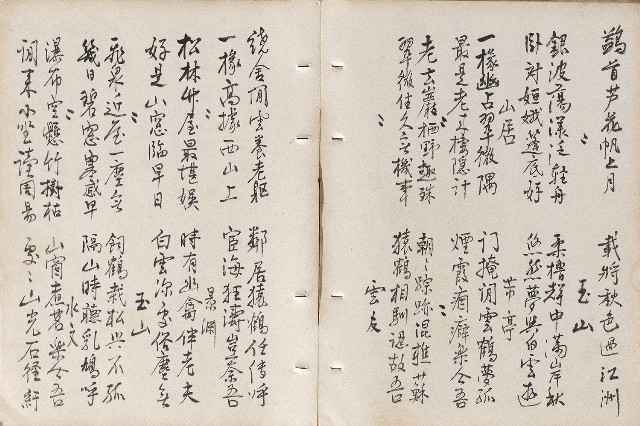 鷁首芦花帆上月 載將秋色過江洲
〻 玉山
銀波蕩漾泛軽舟 柔櫓聲中萬岸秋
卧対姮娥蓬底好 悠然夢與白雲遊
山居 芾亭
一椽幽占翠微隅 门掩閒雲鶴夢孤
最是老夫棲隠計 煙霞痼癖楽今吾
〻 〻
老去巖栖野趣殊 朝〻踪跡混樵蘇
翠微住久忘機事 猿鶴相馴認故吾
〻 雲友
繞舎閒雲養老躯 鄰居猿鶴任傳呼
一椽高據西山上 宦海狂濤豈奈吾
〻 景淵
松林竹屋最堪娯 時有幽禽伴老夫
好是山窓臨早日 白雲深處俗塵無
〻 玉山
飛泉近屋一塵無 飼鶴栽松興不孤
幾日碧窓 感早 隔山時聴乳鳩呼
〻 水文
瀑布空懸竹樹枯 山肴煮茗楽今吾
閒来小坐讀周易 處〻山光石径紆